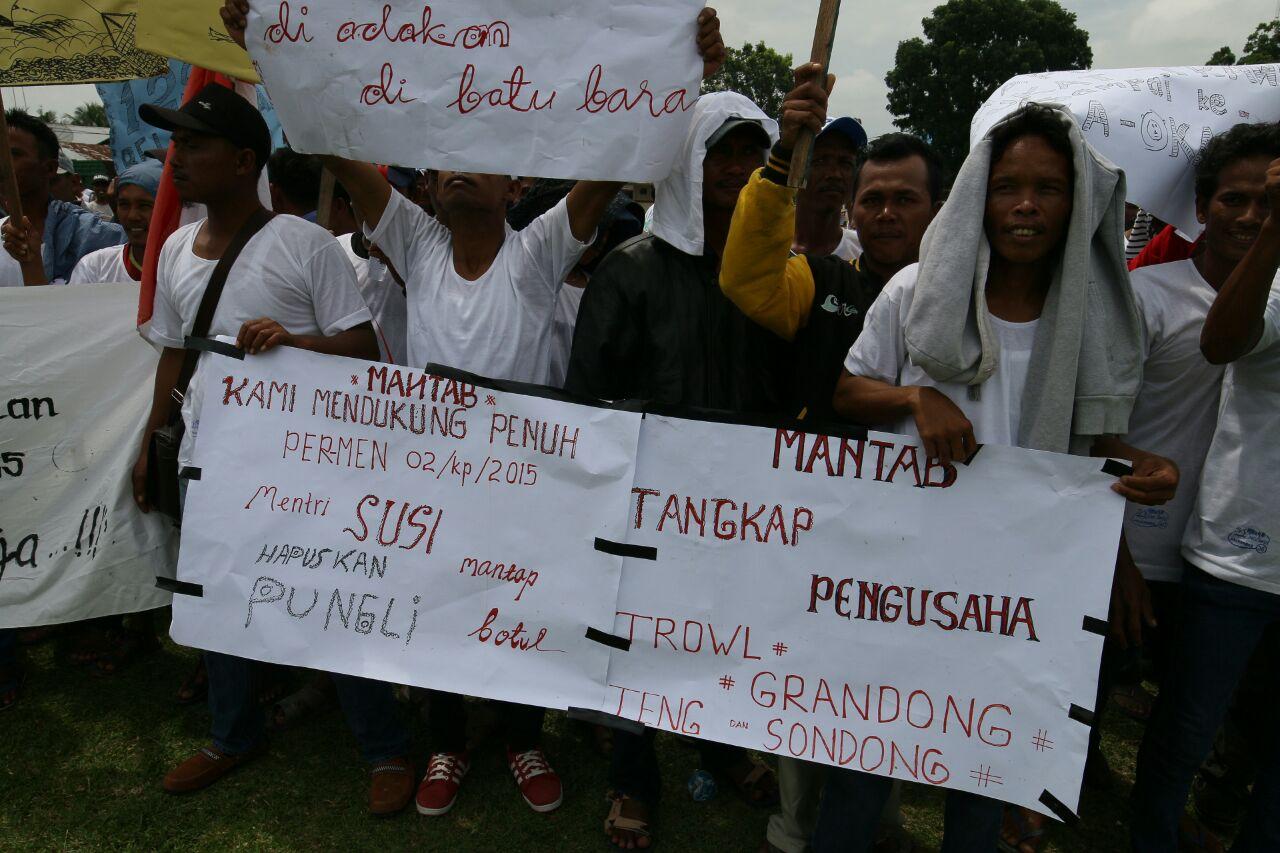 di adakan
di batu bara
*MANTAB*
KAMI MENDUKUNG PENUH
PERMEN 02/kp/2015
Mentri SUSI
HAPUSKAN mantap
PUNGLI botul
MANTAB
TANGKAP
PENGUSAHA
TROWL #
# GRANDONG #
TENG DAN SONDONG #
ke
A-OK
lan
15
ga...!!!